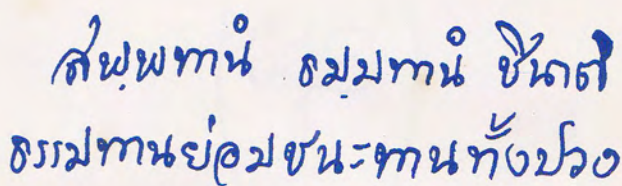 สพฺพทานํ ธมฺมทานํ ชินาติ
ธรรมทานย่อมชนะทานทั้งปวง